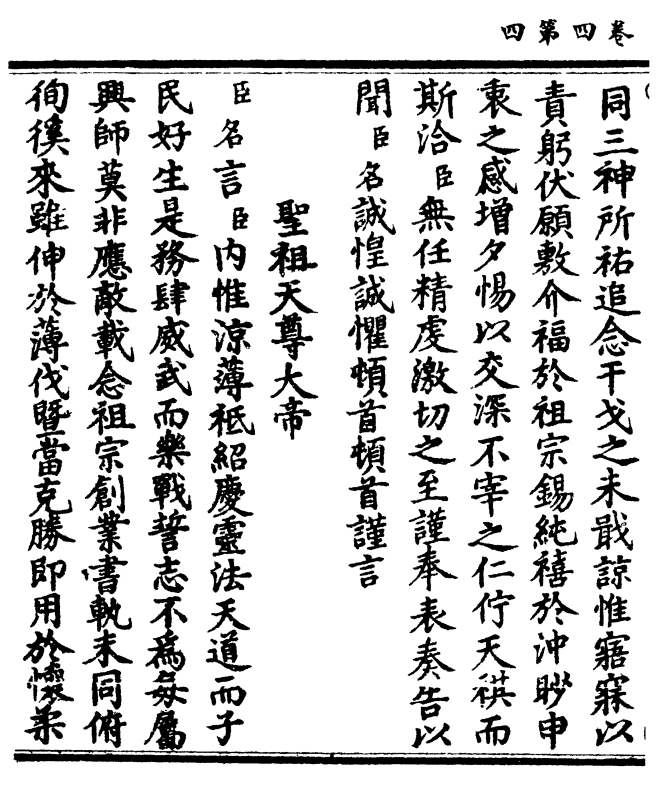 卷四第四
同三神所祐追念干戈之未戢諒惟寤寐以
責躬伏願敷介福於祖宗錫純禧於沖眇申
衷之感增夕惕以交深不宰之仁佇天祺而
斯洽臣無任精虔激切之至謹奉表奏告以
聞臣名誠惶誠懼頓首頓首謹言
聖祖天尊大帝
臣名言臣內惟涼薄祗紹慶靈法天道而子
民好生是務肆威武而樂戰誓志不為每屬
興師莫非應敵載念祖宗創業書軌未同俯
徇徯來雖伸於薄伐暨當克勝即用於懷柔